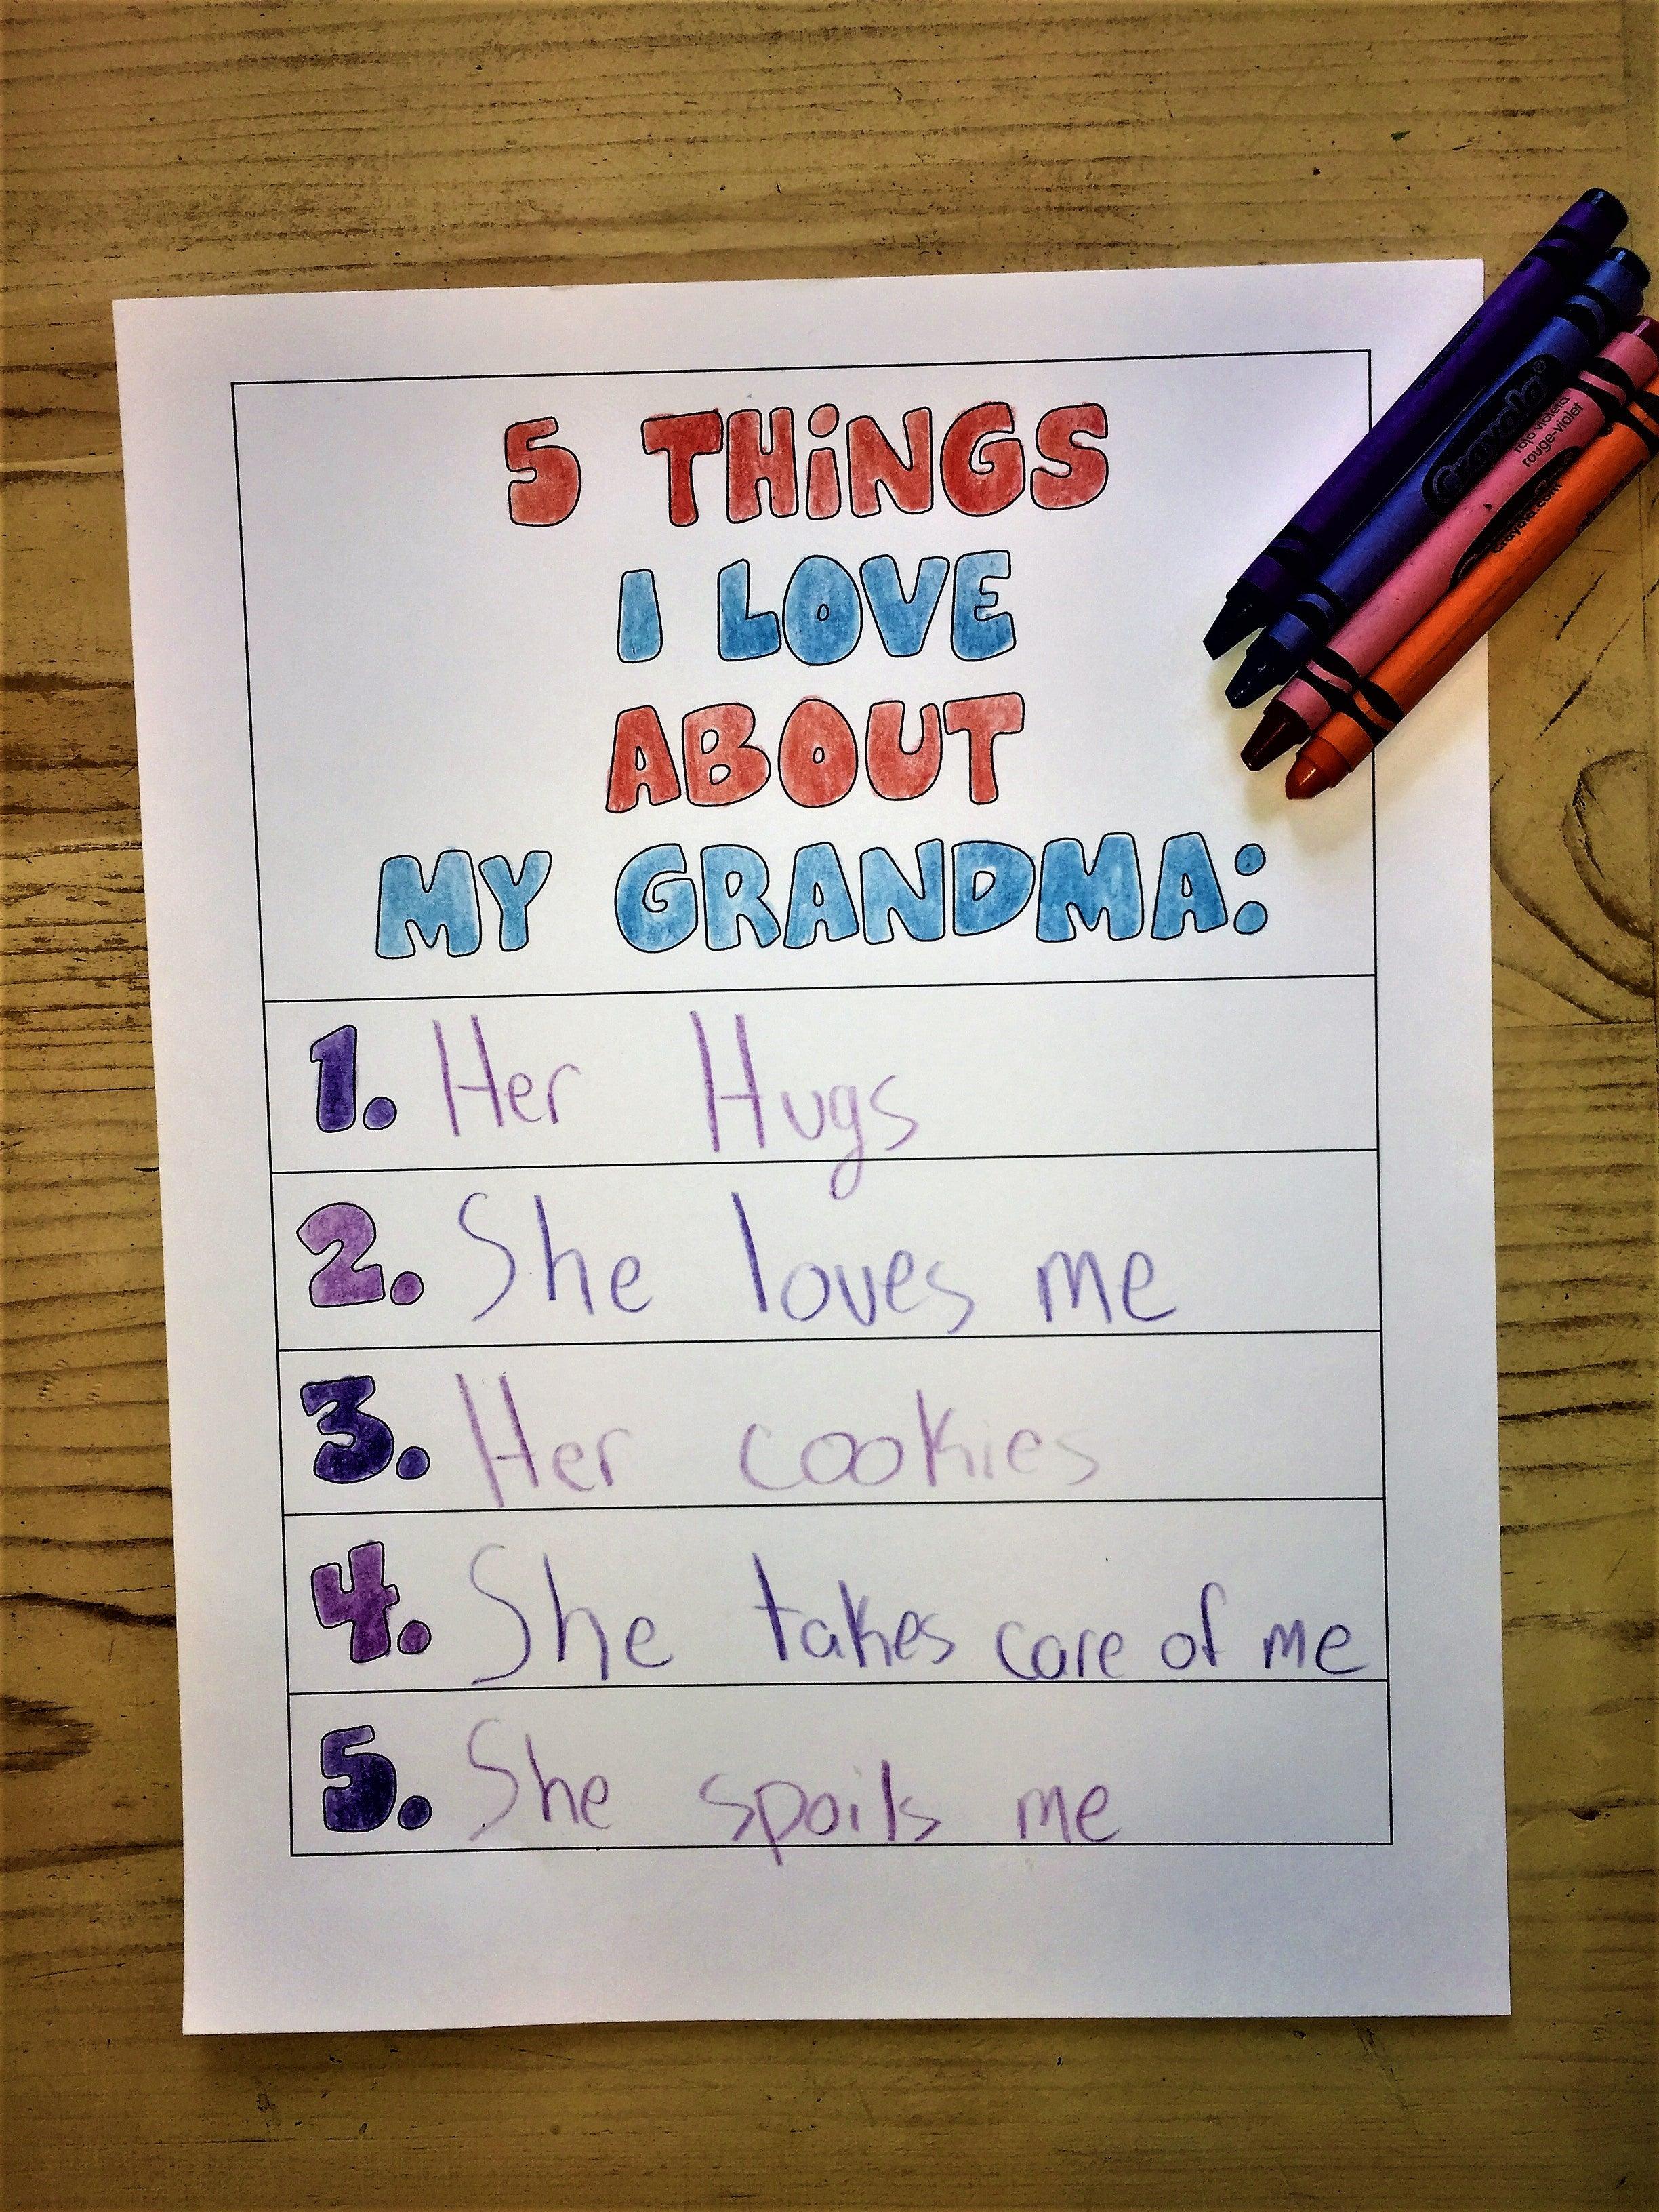 5 THiNGS
I LOVE
ABOUT
MY GRANDMA:
1. Her Hugs
2. She loves me
3. Her cookies
4. She takes care of me
5. She spoils me
Crayola
rojo violeta
rouge-violet
Crayola.com